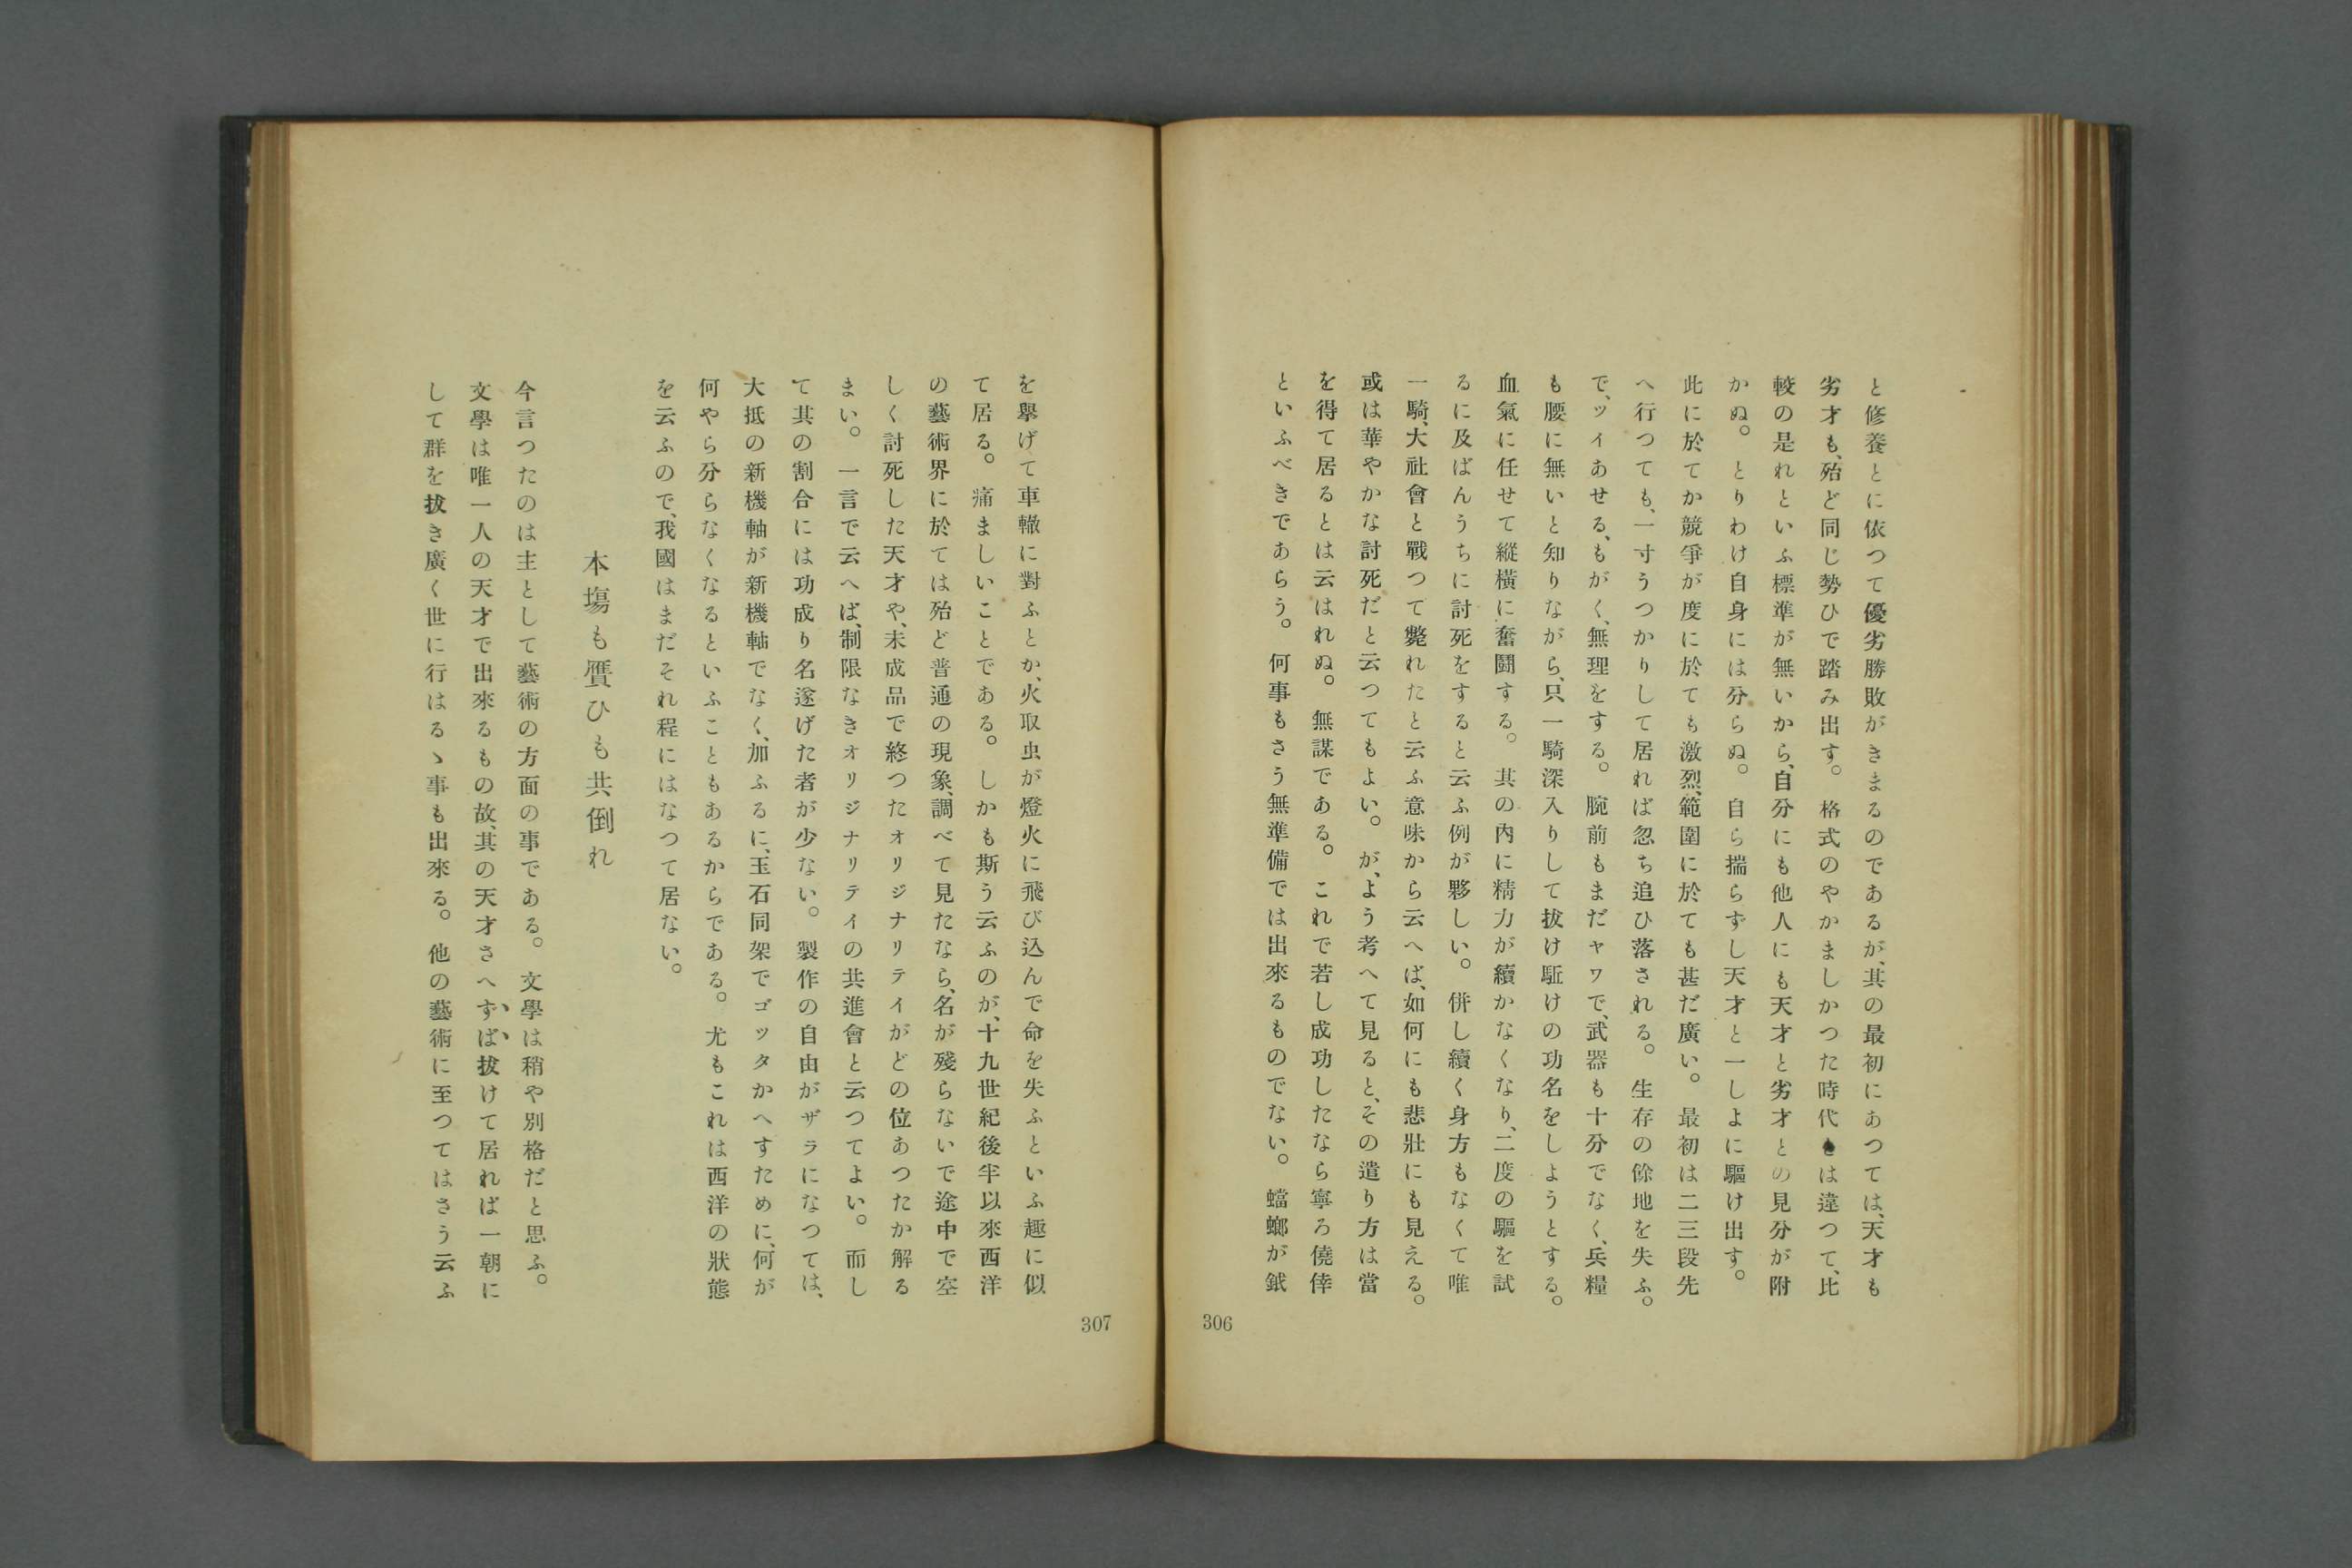 と修養とに依つて優劣勝敗がきまるのであるが、其の最初にあつては、天才も
劣才も、殆ど同じ勢ひで踏み出す。格式のやかましかつた時代とは違つて、比
較の是れといふ標準が無いから、自分にも他人にも天才と劣才との見分が附
かぬ。とりわけ自身には分らぬ。自ら揣らずし天才と一しよに驅け出す。
此に於てか競爭が度に於ても激烈、範圍に於ても甚だ廣い。最初は二三段先
へ行つても、一寸うつかりして居れば忽ち追ひ落される。生存の餘地を失ふ。
で、ツイあせる、もがく、無理をする。腕前もまだヤワで、武器も十分でなく、兵糧
も腰に無いと知りながら、只一騎深入りして拔け駈けの功名をしようとする。
血氣に任せて縱橫に奮鬪する。其の內に精力が續かなくなり、二度の驅を試
るに及ばんうちに討死をすると云ふ例が夥しい。併し續く身方もなくて唯
一騎、大社會と戰つて斃れたと云ふ意味から云へば、如何にも悲壯にも見える。
或は華やかな討死だと云つてもよい。が、よう考へて見ると、その遣り方は當
を得て居るとは云はれぬ。無謀である。これで若し成功したなら寧ろ僥倖
といふべきであらう。何事もさう無準備では出來るものでない。蟷螂が鉞
306
を擧げて車轍に對ふとか、火取虫が燈火に飛び込んで命を失ふといふ趣に似
て居る。痛ましいことである。しかも斯う云ふのが、十九世紀後半以來西洋
の藝術界に於ては殆ど普通の現象、調べて見たなら、名が殘らないで途中で空
しく討死した天才や、未成品で終つたオリジナリテイがどの位あつたか解る
まい。一言で云へば、制限なきオリジナリテイの共進會と云つてよい。而し
て其の割合には功成り名遂げた者が少ない。製作の自由がザラになつては、
大抵の新機軸が新機軸でなく、加ふるに、玉石同架でゴッタかへすために、何が
何やら分らなくなるといふこともあるからである。尤もこれは西洋の狀態
を云ふので、我國はまだそれ程にはなつて居ない。
本塲も贋ひも共倒れ
今言つたのは主として藝術の方面の事である。文學は稍や別格だと思ふ。
文學は唯一人の天才で出來るもの故、其の天才さへずば拔けて居れば一朝に
して群を拔き廣く世に行はるゝ事も出來る。他の藝術に至つてはさう云ふ
307